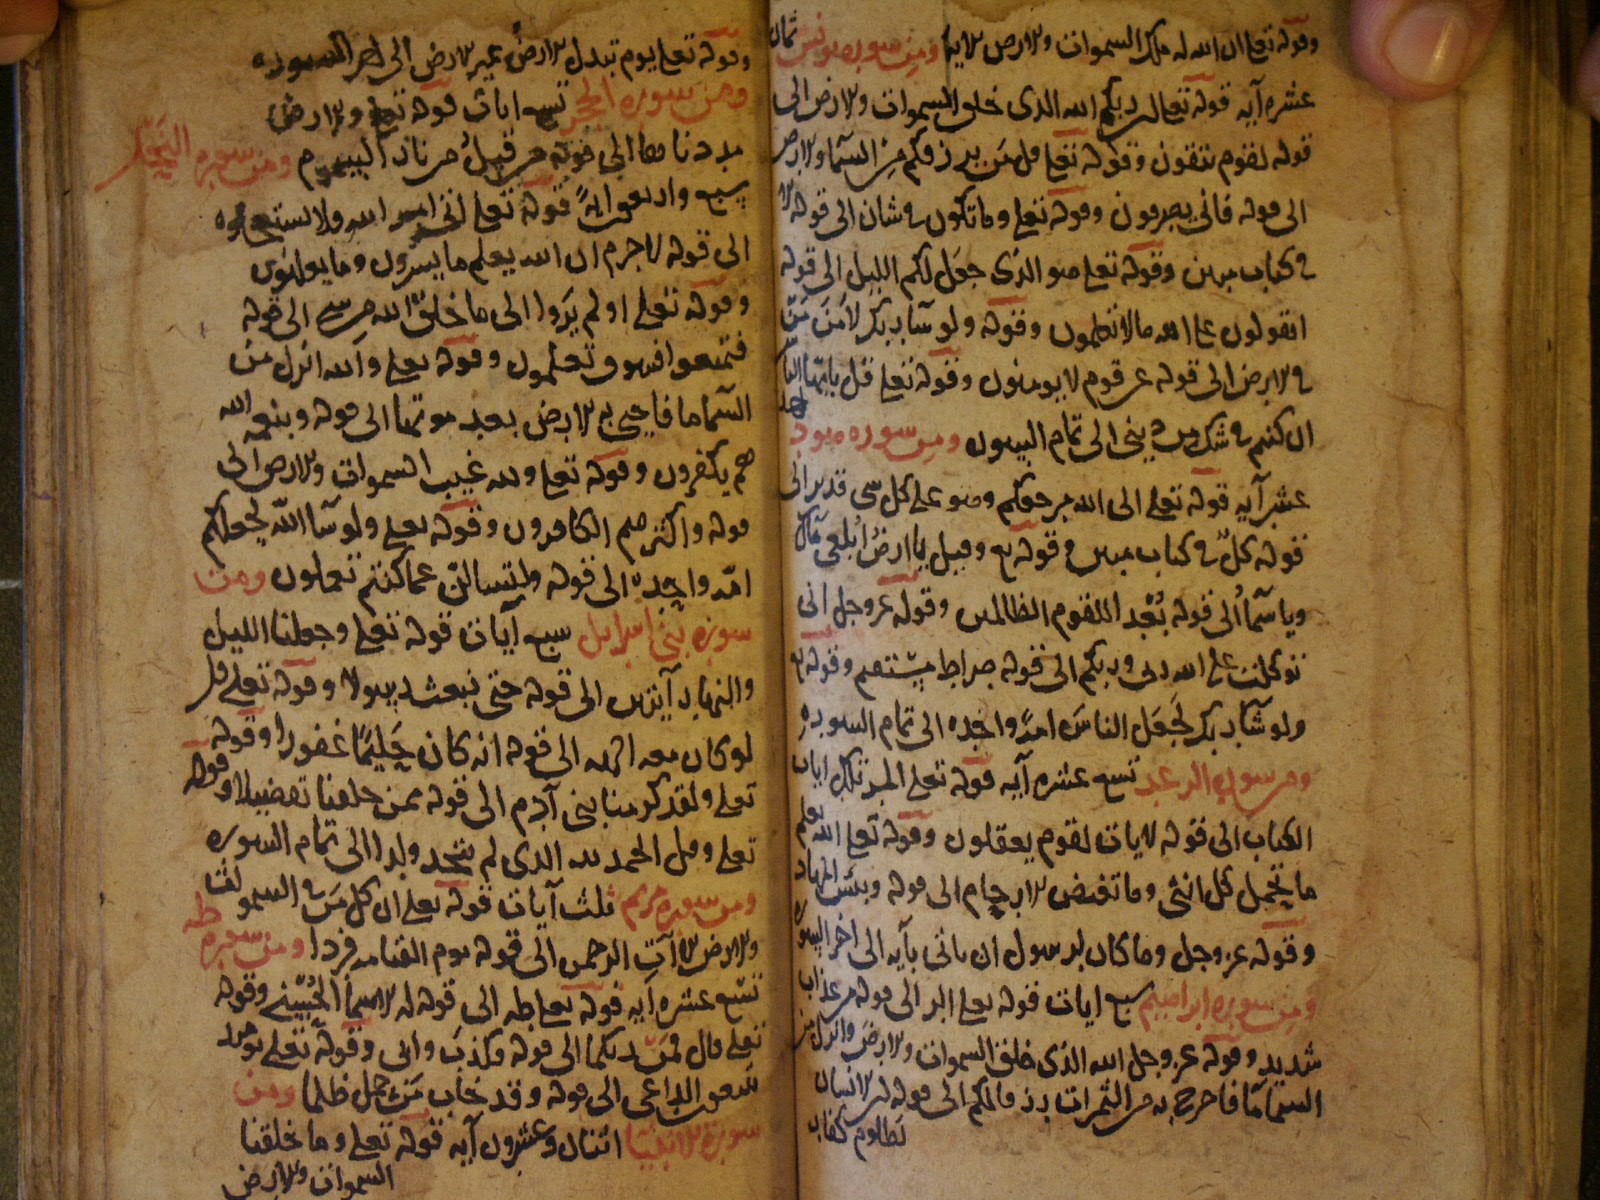 وقوله تعلى ان الله له ملك السموات والارض الاية ومن سوره يونس ثمان
عشره آيه قوله تعالى ربكم الله الذى خلق السموات والارض الى
قوله لقوم يتقون وقوله تعلى قل من يرزقكم من السما والارض
الى قوله فانى يصرفون وقوله تعلى وما تكون في شان الى قوله الا
في كتاب مبين وقوله تعلى هو الذى جعل لكم الليل الى قوله
اتقولون على الله مالا تعلمون وقوله ولو شا ربك لامن من
في الارض الى قوله عن قوم لا يومنون وقوله تعلى قل يا ايها الناس
ان كنتم في شك من دينى الى تمام السوره ومن سوره هود
عشر آيه قوله تعلى الى الله مرجعكم وهو على كل شى قدير الى
قوله كل في كتاب مبين وقوله تع وقيل يا ارض ابلعى ماك
ويا سما الى قوله بعدا للقوم الظالمين وقوله عز وجل انى
توكلت على الله ربى وربكم الى قوله صراط مستقيم وقوله تع
ولو شا ربك لجعل الناس امة واحده الى تمام السوره
ومن سوره الرعد تسع عشره آيه قوله تعلى المر تلك ايات
الكتاب الى قوله لايات لقوم يعقلون وقوله تعلى الله يعلم
ما تحمل كل انثى وما تغيض الارحام الى قوله وبئس المهاد
وقوله عز وجل وما كان لرسول ان ياتى بآيه الى اخر السوره
ومن سوره ابراهيم سبع ايات قوله تعلى الر الى قوله من عذاب
شديد وقوله عز وجل الله الذى خلق السموات والارض وانزل من
السما ما فاخرج به من الثمرات رزقا لكم الى قوله ان الانسان
لظلوم كفار
وقوله تعلى يوم تبدل الارض غير الارض الى اخر السوره
ومن سوره الحجر تسع ايات قوله تعلى والارض
مددناها الى قوله من قبل من نار السموم ومن سوره النحل
سبع واربعون اية قوله تعلى اتى امر الله فلا تستعجلوه
الى قوله لا جرم ان الله يعلم ما يسرون وما يعلنون
وقوله تعلى اولم يروا الى ما خلق الله من شى الى قوله
فتمتعوا فسوف تعلمون وقوله تعلى والله انزل من
السما ما فاحيى به الارض بعد موتها الى قوله وبنعمه الله
هم يكفرون وقوله تعلى ولله غيب السموات والارض الى
قوله واكثرهم الكافرون وقوله تعلى ولو شا الله لجعلكم
امة واحده الى قوله ولتسالن عما كنتم تعملون ومن
سوره بنى اسرايل سبع آيات قوله تعلى وجعلنا الليل
والنهار آيتين الى قوله حتى نبعث رسولا وقوله تعلى قل
لو كان معه الهه الى قوله انه كان حليما غفورا وقوله
تعلى ولقد كرمنا بنى آدم الى قوله ممن خلقنا تفضيلا وقوله
تعلى وقل الحمد لله الذى لم يتخذ ولدا الى تمام السوره
ومن سوره مريم ثلث آيات قوله تعلى ان كل من في السموات
والارض الا آت الرحمن الى قوله يوم القيامه فردا ومن سوره طه
تسع عشره آيه قوله تعلى طه الى قوله له الاسما الحسنى وقوله
تعلى قال فمن ربكما الى قوله فكذب وابى وقوله تعلى يومئذ
يتبعون الداعى الى قوله وقد خاب من حمل ظلما ومن
سورة الانبيا اثنان وعشرون آيه قوله تعلى وما خلقنا
السموات والارض